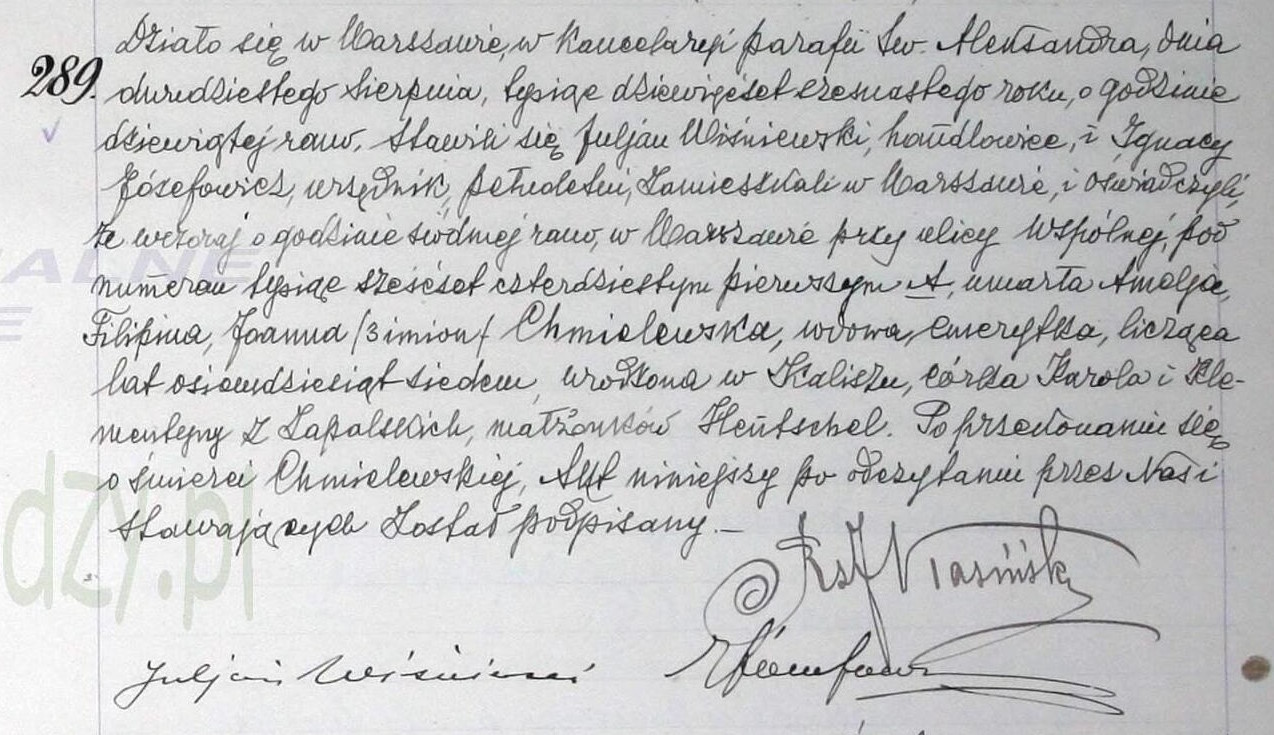 Działo się w Warszawie, w kancelaryi parafii Św. Aleksandra, dnia
289. dwudziestego Sierpnia, tysiąc dziewięćset szesnastego roku, o godzinie
dziewiątej rano. Stawili się Juljan Wiśniewski, handlowiec, i Ignacy
Józefowicz, urzędnik, pełnoletni, zamieszkali w Warszawie, i oświadczyli,
że wczoraj o godzinie siódmej rano, w Warszawie przy ulicy Wspólnej, pod
numerem tysiąc sześćset czterdziestym pierwszym A, umarła Amelja,
Filipina, Joanna /3 imion/ Chmielewska, wdowa, emerytka, licząca
lat osiemdziesiąt siedem, urodzona w Kaliszu, córka Karola i Kle-
mentyny z Zapalskich, małżonków Hentschel. Po przekonaniu się
o śmierci Chmielewskiej, Akt niniejszy po odczytaniu przez Nas i
stawających został podpisany. —
Juljan Wiśniewski
ALNE
E
dzy.pl